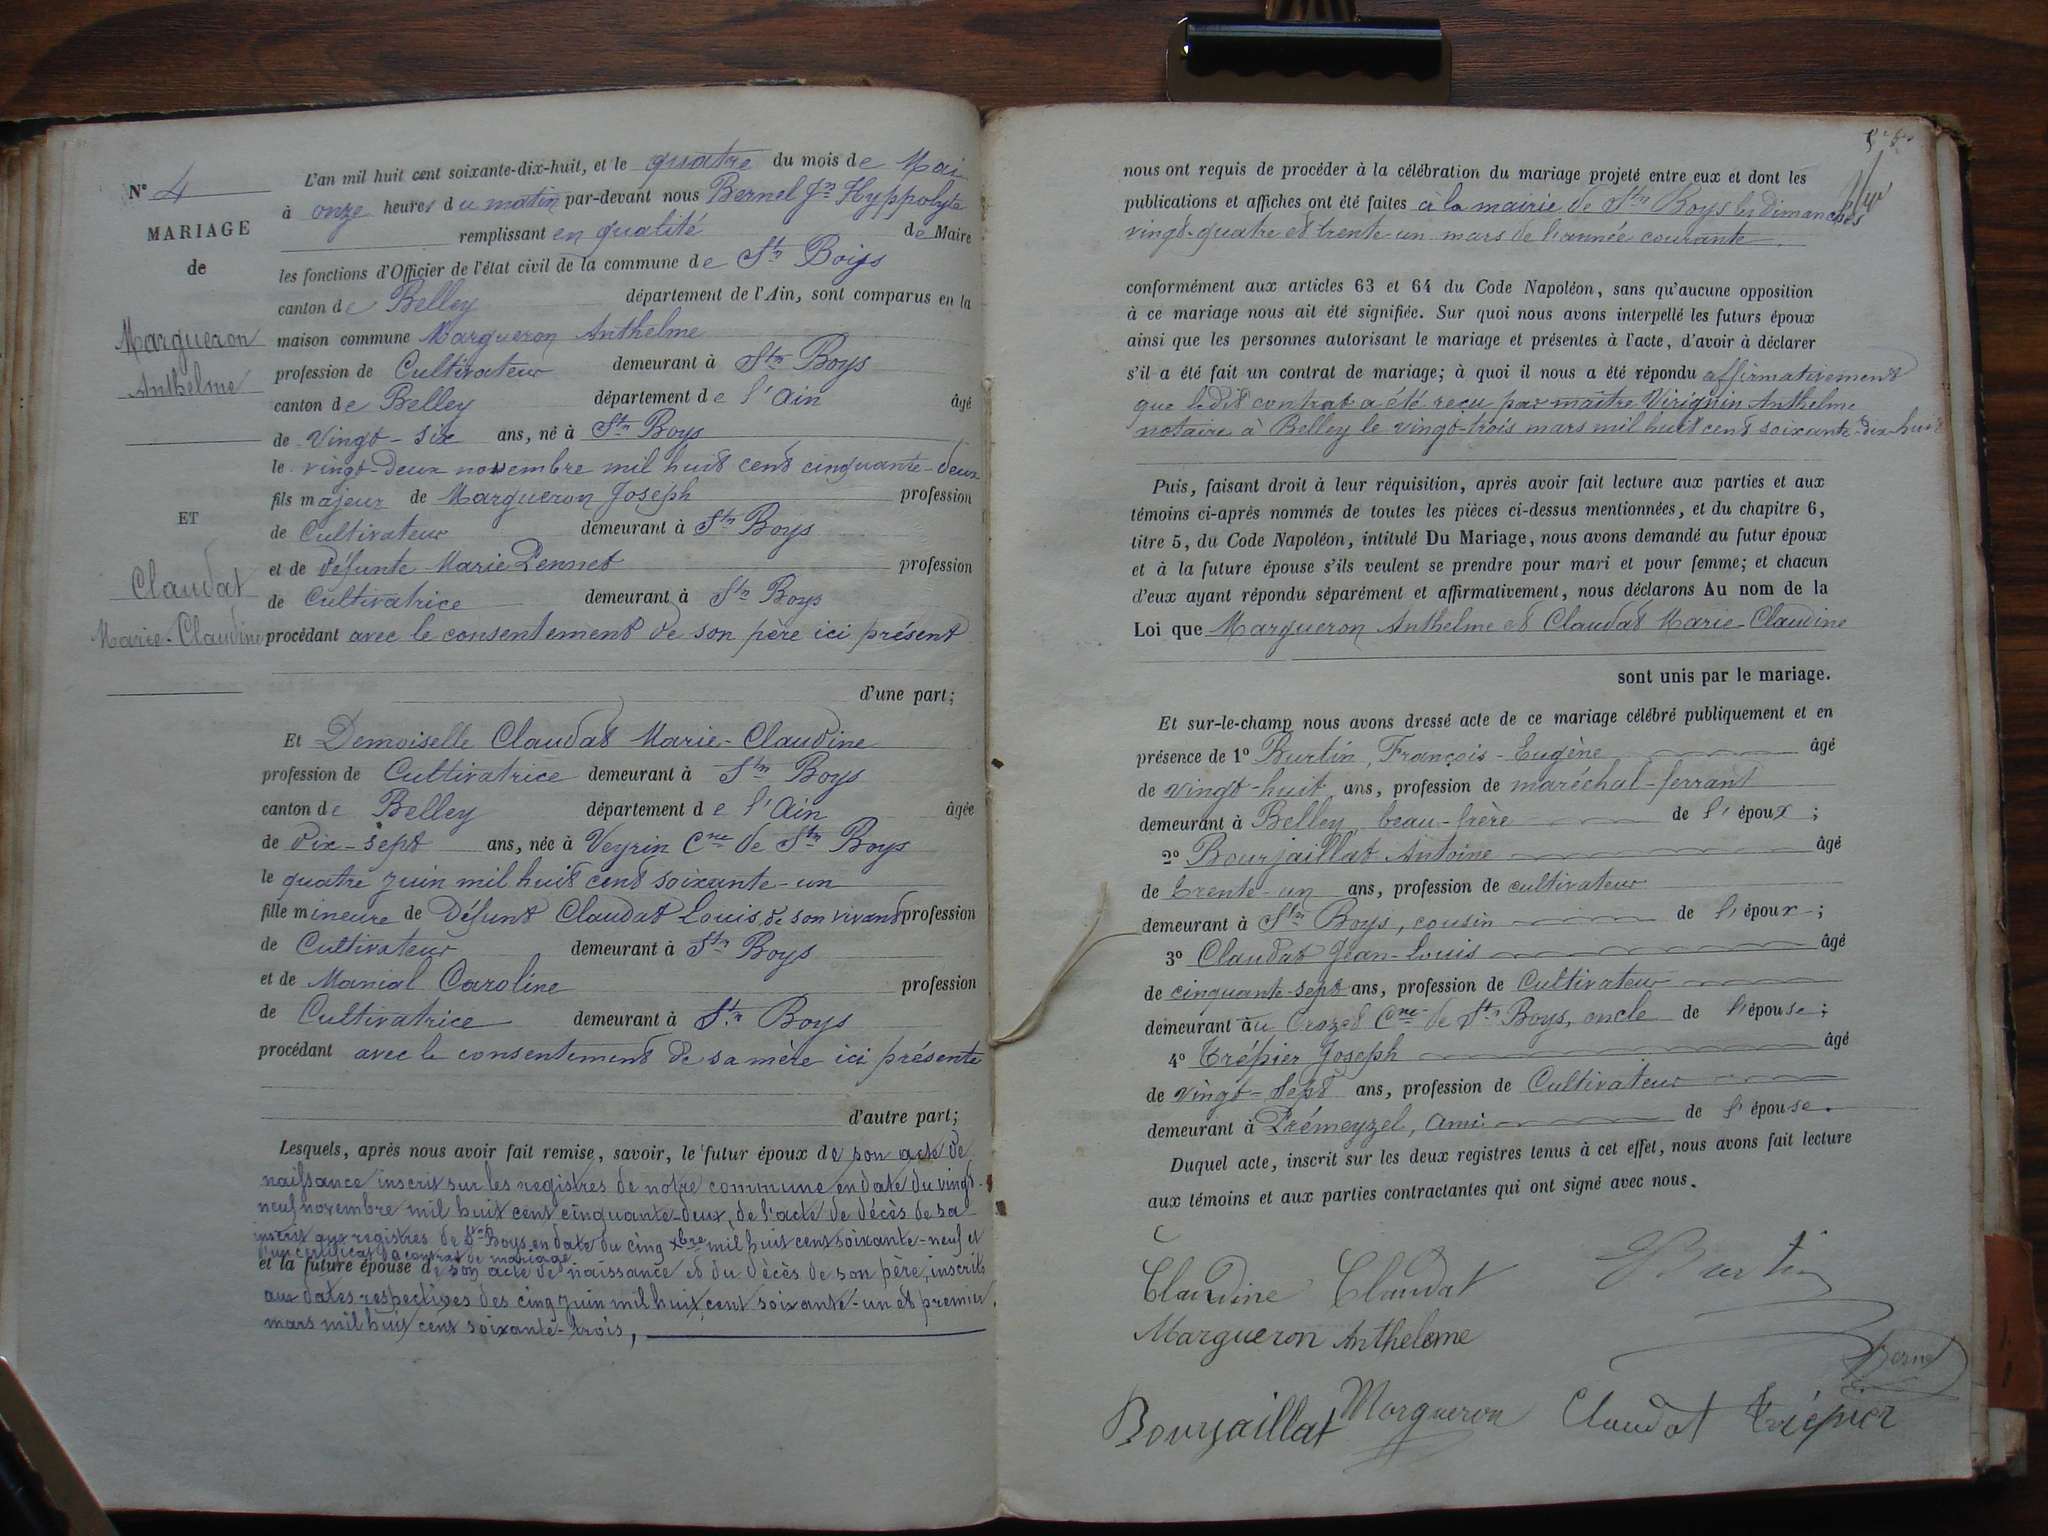 N° 4
MARIAGE
de
Margueron
Anthelme
ET
Claudat
Marie-Claudine
L'an mil huit cent soixante-dix-huit, et le quatre du mois de Mai
à onze heures du matin par-devant nous Bernel Jn Hyppolyte
remplissant en qualité de Maire
les fonctions d'Officier de l'état civil de la commune de Stn Boijs
canton de Belley département de l'Ain, sont comparus en la
maison commune Margueron Anthelme
profession de Cultivateur demeurant à Stn Boys
canton de Belley département de l'Ain âgé
de vingt-six ans, né à Stn Boys
le vingt-deux novembre mil huit cent cinquante-deux
fils majeur de Margueron Joseph profession
de Cultivateur demeurant à Stn Boys
et de défunte Marie Pennet profession
de Cultivatrice demeurant à Stn Boys
procédant avec le consentement de son père ici présent
d'une part;
Et Demoiselle Claudat Marie-Claudine
profession de Cultivatrice demeurant à Stn Boys
canton de Belley département de l'Ain âgée
de dix-sept ans, née à Veyrin Cne de Stn Boys
le quatre juin mil huit cent soixante-un
fille mineure de Défunt Claudat Louis de son vivant profession
de Cultivateur demeurant à Stn Boys
et de Manial Caroline profession
de Cultivatrice demeurant à Stn Boys
procédant avec le consentement de sa mère ici présente
d'autre part;
Lesquels, après nous avoir fait remise, savoir, le futur époux de son acte de
naissance inscrit sur les registres de notre commune en date du vingt-
neuf novembre mil huit cent cinquante-deux, de l'acte de décès de sa
inscrit aux registres de Stn Boys en date du cinq xbre mil huit cent soixante-neuf et
d'un certificat de contrat de mariage
et la future épouse de son acte de naissance et du décès de son père, inscrits
aux dates respectives des cinq juin mil huit cent soixante-un et premier
mars mil huit cent soixante-trois,
nous ont requis de procéder à la célébration du mariage projeté entre eux et dont les
publications et affiches ont été faites à la mairie de Stn Boys les dimanches
vingt-quatre et trente-un mars de l'année courante.
conformément aux articles 63 et 64 du Code Napoléon, sans qu'aucune opposition
à ce mariage nous ait été signifiée. Sur quoi nous avons interpellé les futurs époux
ainsi que les personnes autorisant le mariage et présentes à l'acte, d'avoir à déclarer
s'il a été fait un contrat de mariage; à quoi il nous a été répondu affirmativement
que ledit contrat a été reçu par maître Virignin Anthelme
notaire à Belley le vingt-trois mars mil huit cent soixante-dix-huit
Puis, faisant droit à leur réquisition, après avoir fait lecture aux parties et aux
témoins ci-après nommés de toutes les pièces ci-dessus mentionnées, et du chapitre 6,
titre 5, du Code Napoléon, intitulé Du Mariage, nous avons demandé au futur époux
et à la future épouse s'ils veulent se prendre pour mari et pour femme; et chacun
d'eux ayant répondu séparément et affirmativement, nous déclarons Au nom de la
Loi que Margueron Anthelme et Claudat Marie-Claudine
sont unis par le mariage.
Et sur-le-champ nous avons dressé acte de ce mariage célébré publiquement et en
présence de 1° Burtin, François-Eugène âgé
de vingt-huit ans, profession de maréchal-ferrant
demeurant à Belley, beau-frère de l'époux;
2° Bourjaillat Antoine âgé
de trente-un ans, profession de cultivateur
demeurant à Stn Boys, cousin de l'époux;
3° Claudat Jean-Louis âgé
de cinquante-sept ans, profession de Cultivateur
demeurant au Crozet Cne de Stn Boys, oncle de l'épouse;
4° Trépier Joseph âgé
de vingt-sept ans, profession de Cultivateur
demeurant à Prémeyzel, ami de l'épouse.
Duquel acte, inscrit sur les deux registres tenus à cet effet, nous avons fait lecture
aux témoins et aux parties contractantes qui ont signé avec nous.
Claudine Claudat Burtin
Margueron Anthelme
Bernel
Bourjaillat Margueron Claudat Trépier